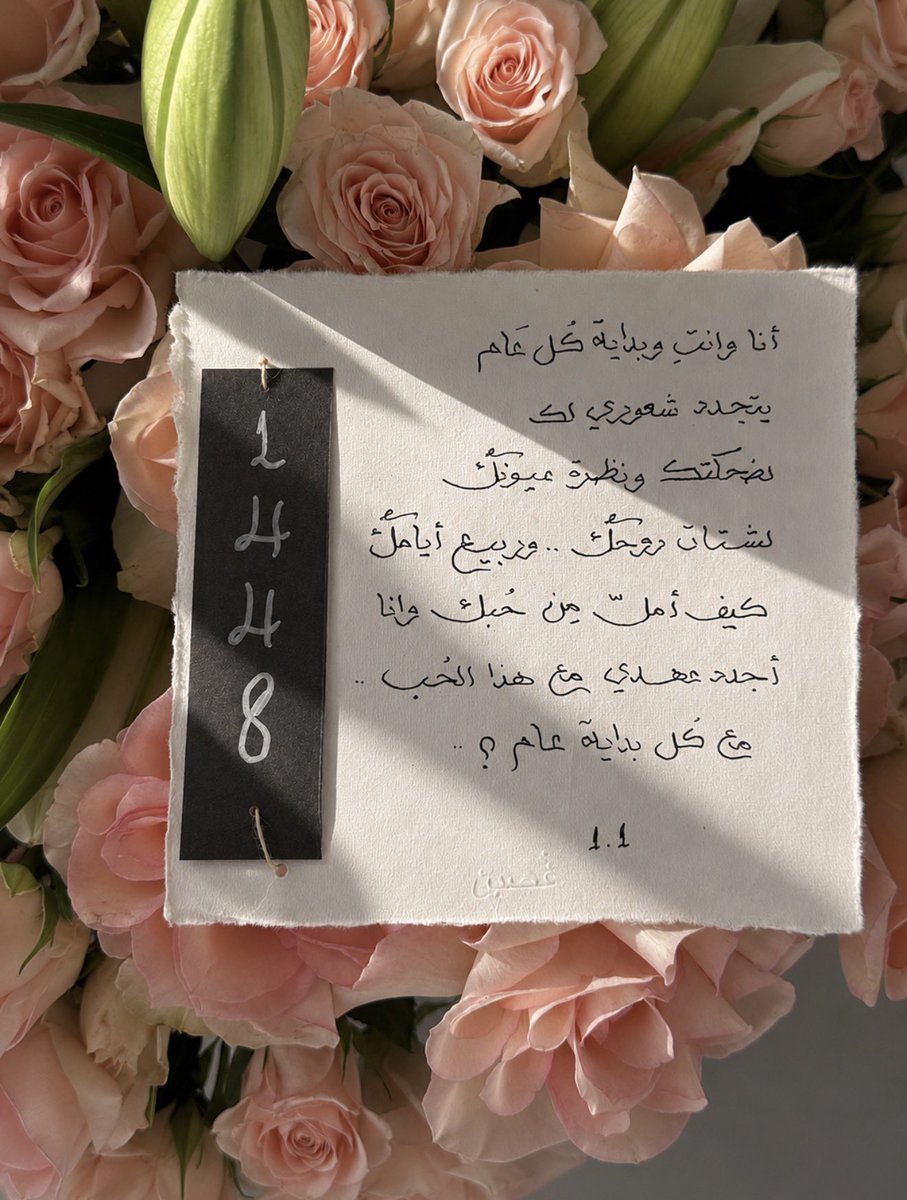 أنا وانتِ وبداية كُل عَام
يتجدد شعوري لك
لضحكتك ونظرة عيونكْ
لشتات روحكْ .. وربيع أيامكْ
كيف أملّ مِن حُبك وانا
أجدد عهدي مع هذا الحُب ..
مع كُل بداية عام ؟ ..
1.1
غصين
1
4
4
8